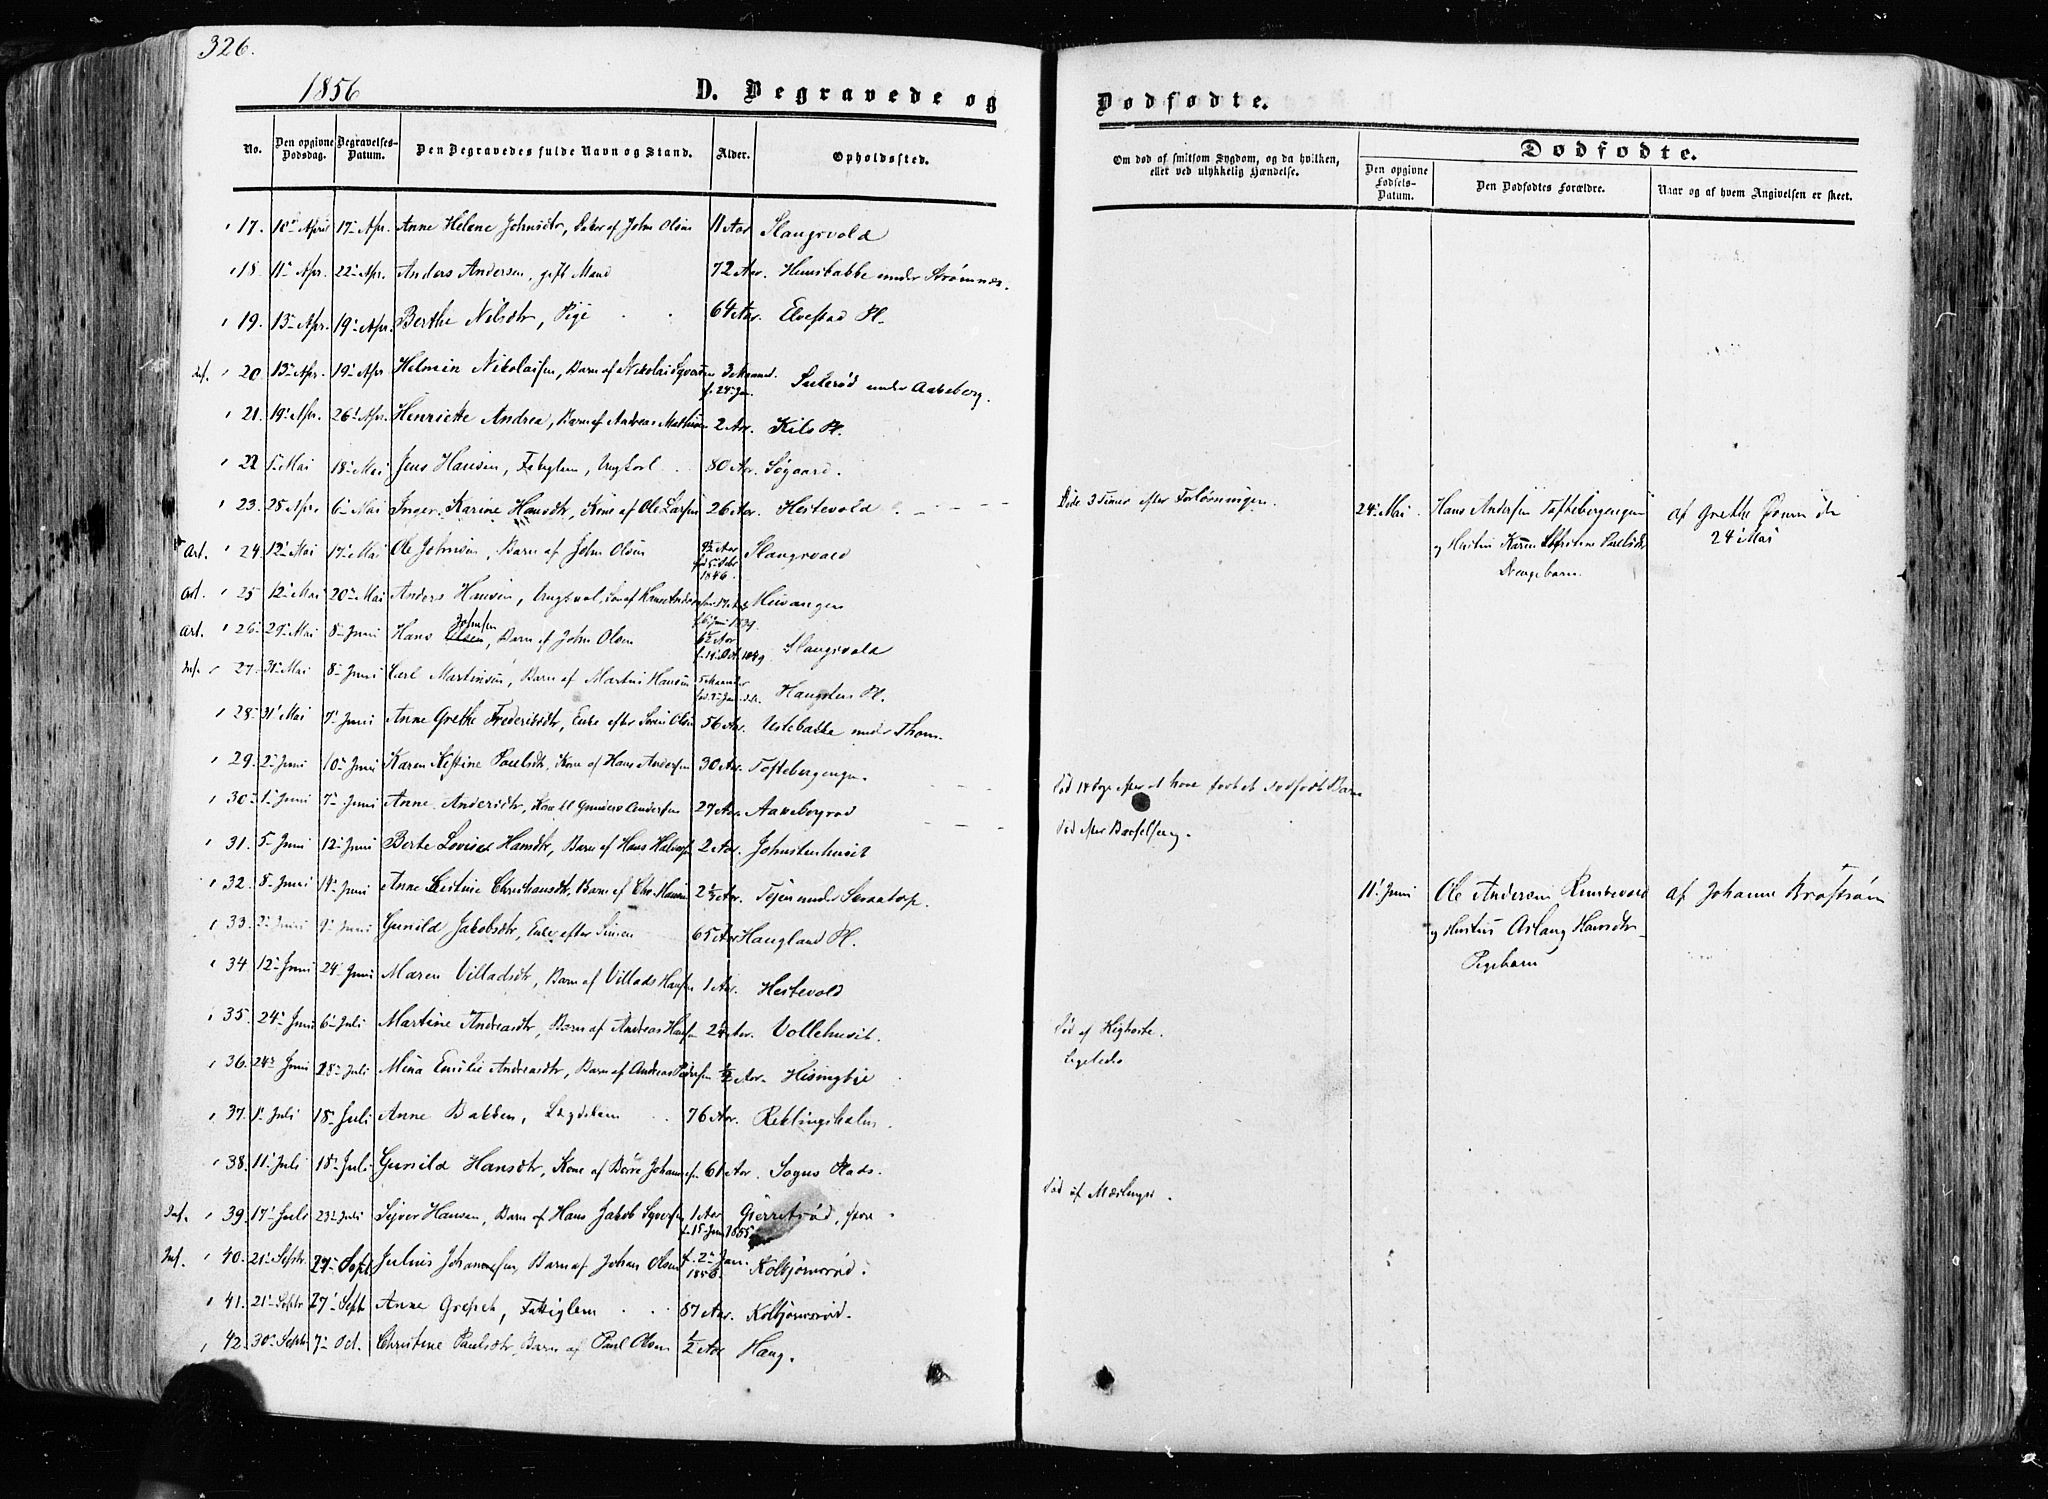 326.
1856
D. Begravede og
No.
Den opgivne Dødsdag.
Begravelses-Datum.
Den Begravedes fulde Navn og Stand.
Alder.
Opholdssted.
17. 10 April 17 Apr. Anne Helene Johnsdtr, Datter af John Olsen 11 Aar Slangsvold
18. 11 Apr. 22 Apr. Anders Andersen, gift Mand 72 Aar. under Strømnæs.
19. 13 Apr. 19 Apr. Berthe Nilsdtr, Pige 64 Aar. Elvestad Pl.
Inf. 20. 13 Apr. 19 Apr. Helmin Nikolaisen, Barn af Nikolai 3 Maaned. under Aakeberg.
21. 19 Apr. 26 Apr. Henriette Andrea, Barn af Andreas Mathisen 2 Aar. Kils Pl.
22 Mai 18 Mai Jens Hansen, Fatiglem, Ungkarl 80 Aar. Søgaard.
23. 25 Apr. 6 Mai Inger Karine Hansdtr, Kone af Ole Larsen 26 Aar. Hestevold
Art. 24. 12 Mai 17 Mai Ole Johnsen, Barn af John Olsen 9½ Aar 1846. Slangsvold
Art. 25 12 Mai 20 Mai Anders Hansen, Ungkarl, Søn af Hans
Art. 26. 29 Mai 8 Juni Hans Johnsen, Barn af John Olsen 6½ Aar f. 14 Oct. 1849 Slangsvold
Inf. 27. 31 Mai 8 Juni Carl Martinsen, Barn af Martin Hansen 5 Maaneder Haugsten Pl.
28. 31 Mai 7 Juni Anne Grethe Frederiksdtr, Enke efter Søren Olsen 56 Aar. under Thom.
29. 2 Juni 10 Juni Karen Kestine Paulsdtr, Kone af Hans Andersen 30 Aar. Toftebergengen.
30. 1 Juni 7 Juni Anne Andersdtr, Kone til Gunder Andersen 27 Aar.
31. 5 Juni 12 Juni Berte Lovise Hansdtr, Barn af Hans Halvorsen 2 Aar.
32. 8 Juni 14 Juni Anne Kestine Christiansdtr, Barn af Chr. Hansen 2½ Aar.
33. 2 Juni 9 Juni Gunild Jakobsdtr, Enke efter Simen 65 Aar Haugland Pl.
34 12 Juni 24 Juni Maren Villadsdtr, Barn af Villads Hansen 1 Aar. Hestevold
35. 24 Juni 6 Juli Martine Andreasdtr, Barn af Andreas Hansen 2½ Aar. Vollehuset.
36. 24 Juni 28 Juli Mina Emilie Andreasdtr, Barn af Andreas Pedersen ½ Aar. Hisingbye
37. 1 Juli 18 Juli Anne Bakken, Lægdslem 76 Aar. Reklingsholm
38. 11 Juli 18 Juli Gunild Hansdtr, Kone af Børre Johannesen 61 Aar. Sogns Plads.
Inf. 39. 17 Juli 23 Juli Sijver Hansen, Barn af Hans Jakob Syversen 1 Aar f. 15 Juni 1855 Gjerretsrød, store
Inf. 40. 21 Septr. 27 Sept. Julius Johannesen, Barn af Johan Olsen f. 2 Jan. 1856. Kolbjørnsrød.
41. 21 Septr 27 Sept. Anne Grepsch, Fattiglem 87 Aar. Kolbjørnsrød.
42. 30 Septr 7 Oct. Christine Paulsdtr, Barn af Paul Olsen ½ Aar Haug.
Dødfødte.
Om død af smitsom Sygdom, og da hvilken, eller ved ulykkelig Hændelse.
Dødfødte.
Den opgivne Fødsels-Datum.
Den Dødfødtes Forældre.
Naar og af hvem Angivelsen er skeet.
Døde 3 Timer efter Forløsningen.
24 Mai Hans Andersen Toftebergengen af Grethe den
og Hustru Karen Kestine Paulsdtr 24 Mai
Drengebarn.
Død 14 Dage efter at have født et dødfødt Barn
Død efter Barselseng.
11 Juni Ole Andersen af Johanne
og Hustru Aslaug Hansdtr
Pigebarn
Død af Kighoste.
Ligeledes
Død af Mæslinger.